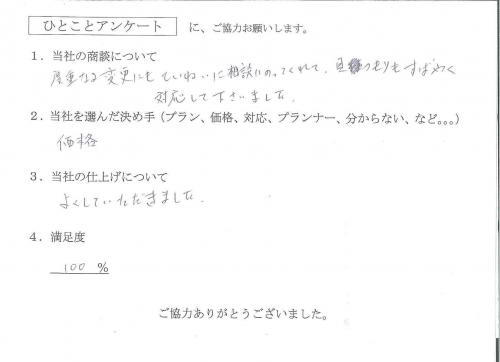 ひとことアンケート に、ご協力お願いします。
1．当社の商談について
度重なる変更にもていねいに相談にのってくれて、見積つもりもすばやく
対応して下さいました。
2．当社を選んだ決め手（プラン、価格、対応、プランナー、分からない、など。。。）
価格
3．当社の仕上げについて
よくしていただきました。
4．満足度
100 %
ご協力ありがとうございました。